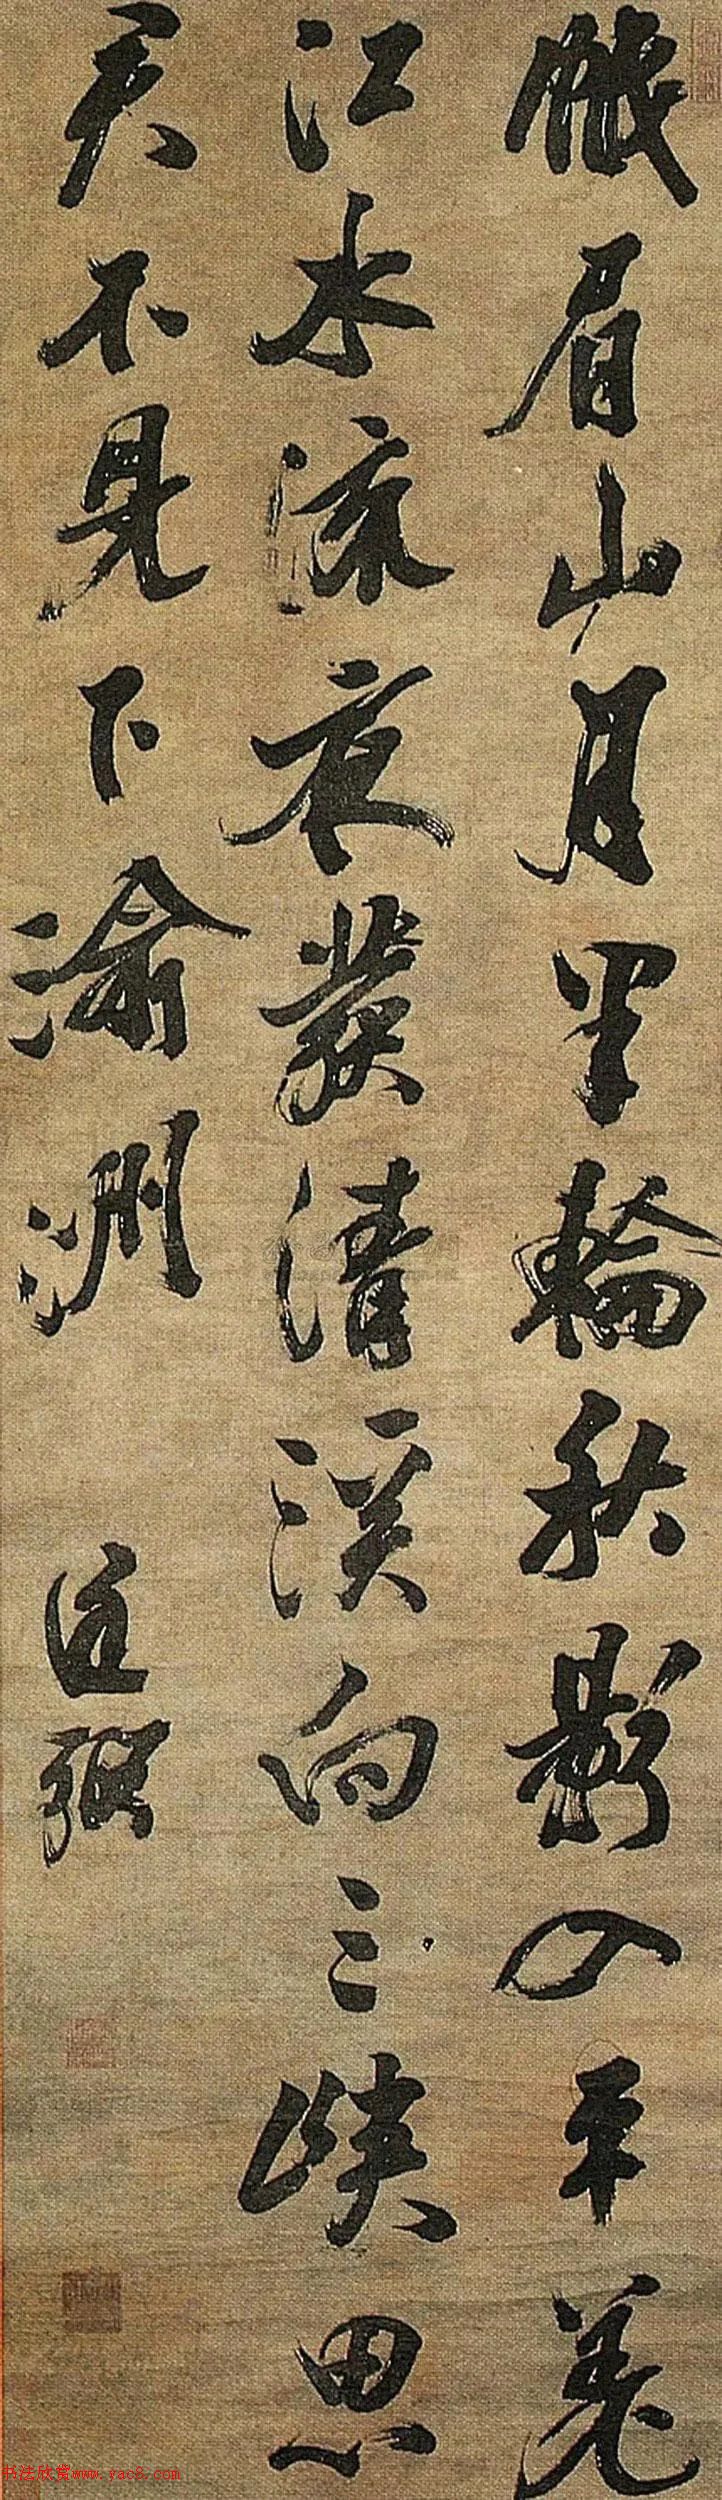 峨眉山月半輪秋影入平羌
江水流夜發清溪向三峽思
君不見下渝洲
书法欣赏www.yac8.com